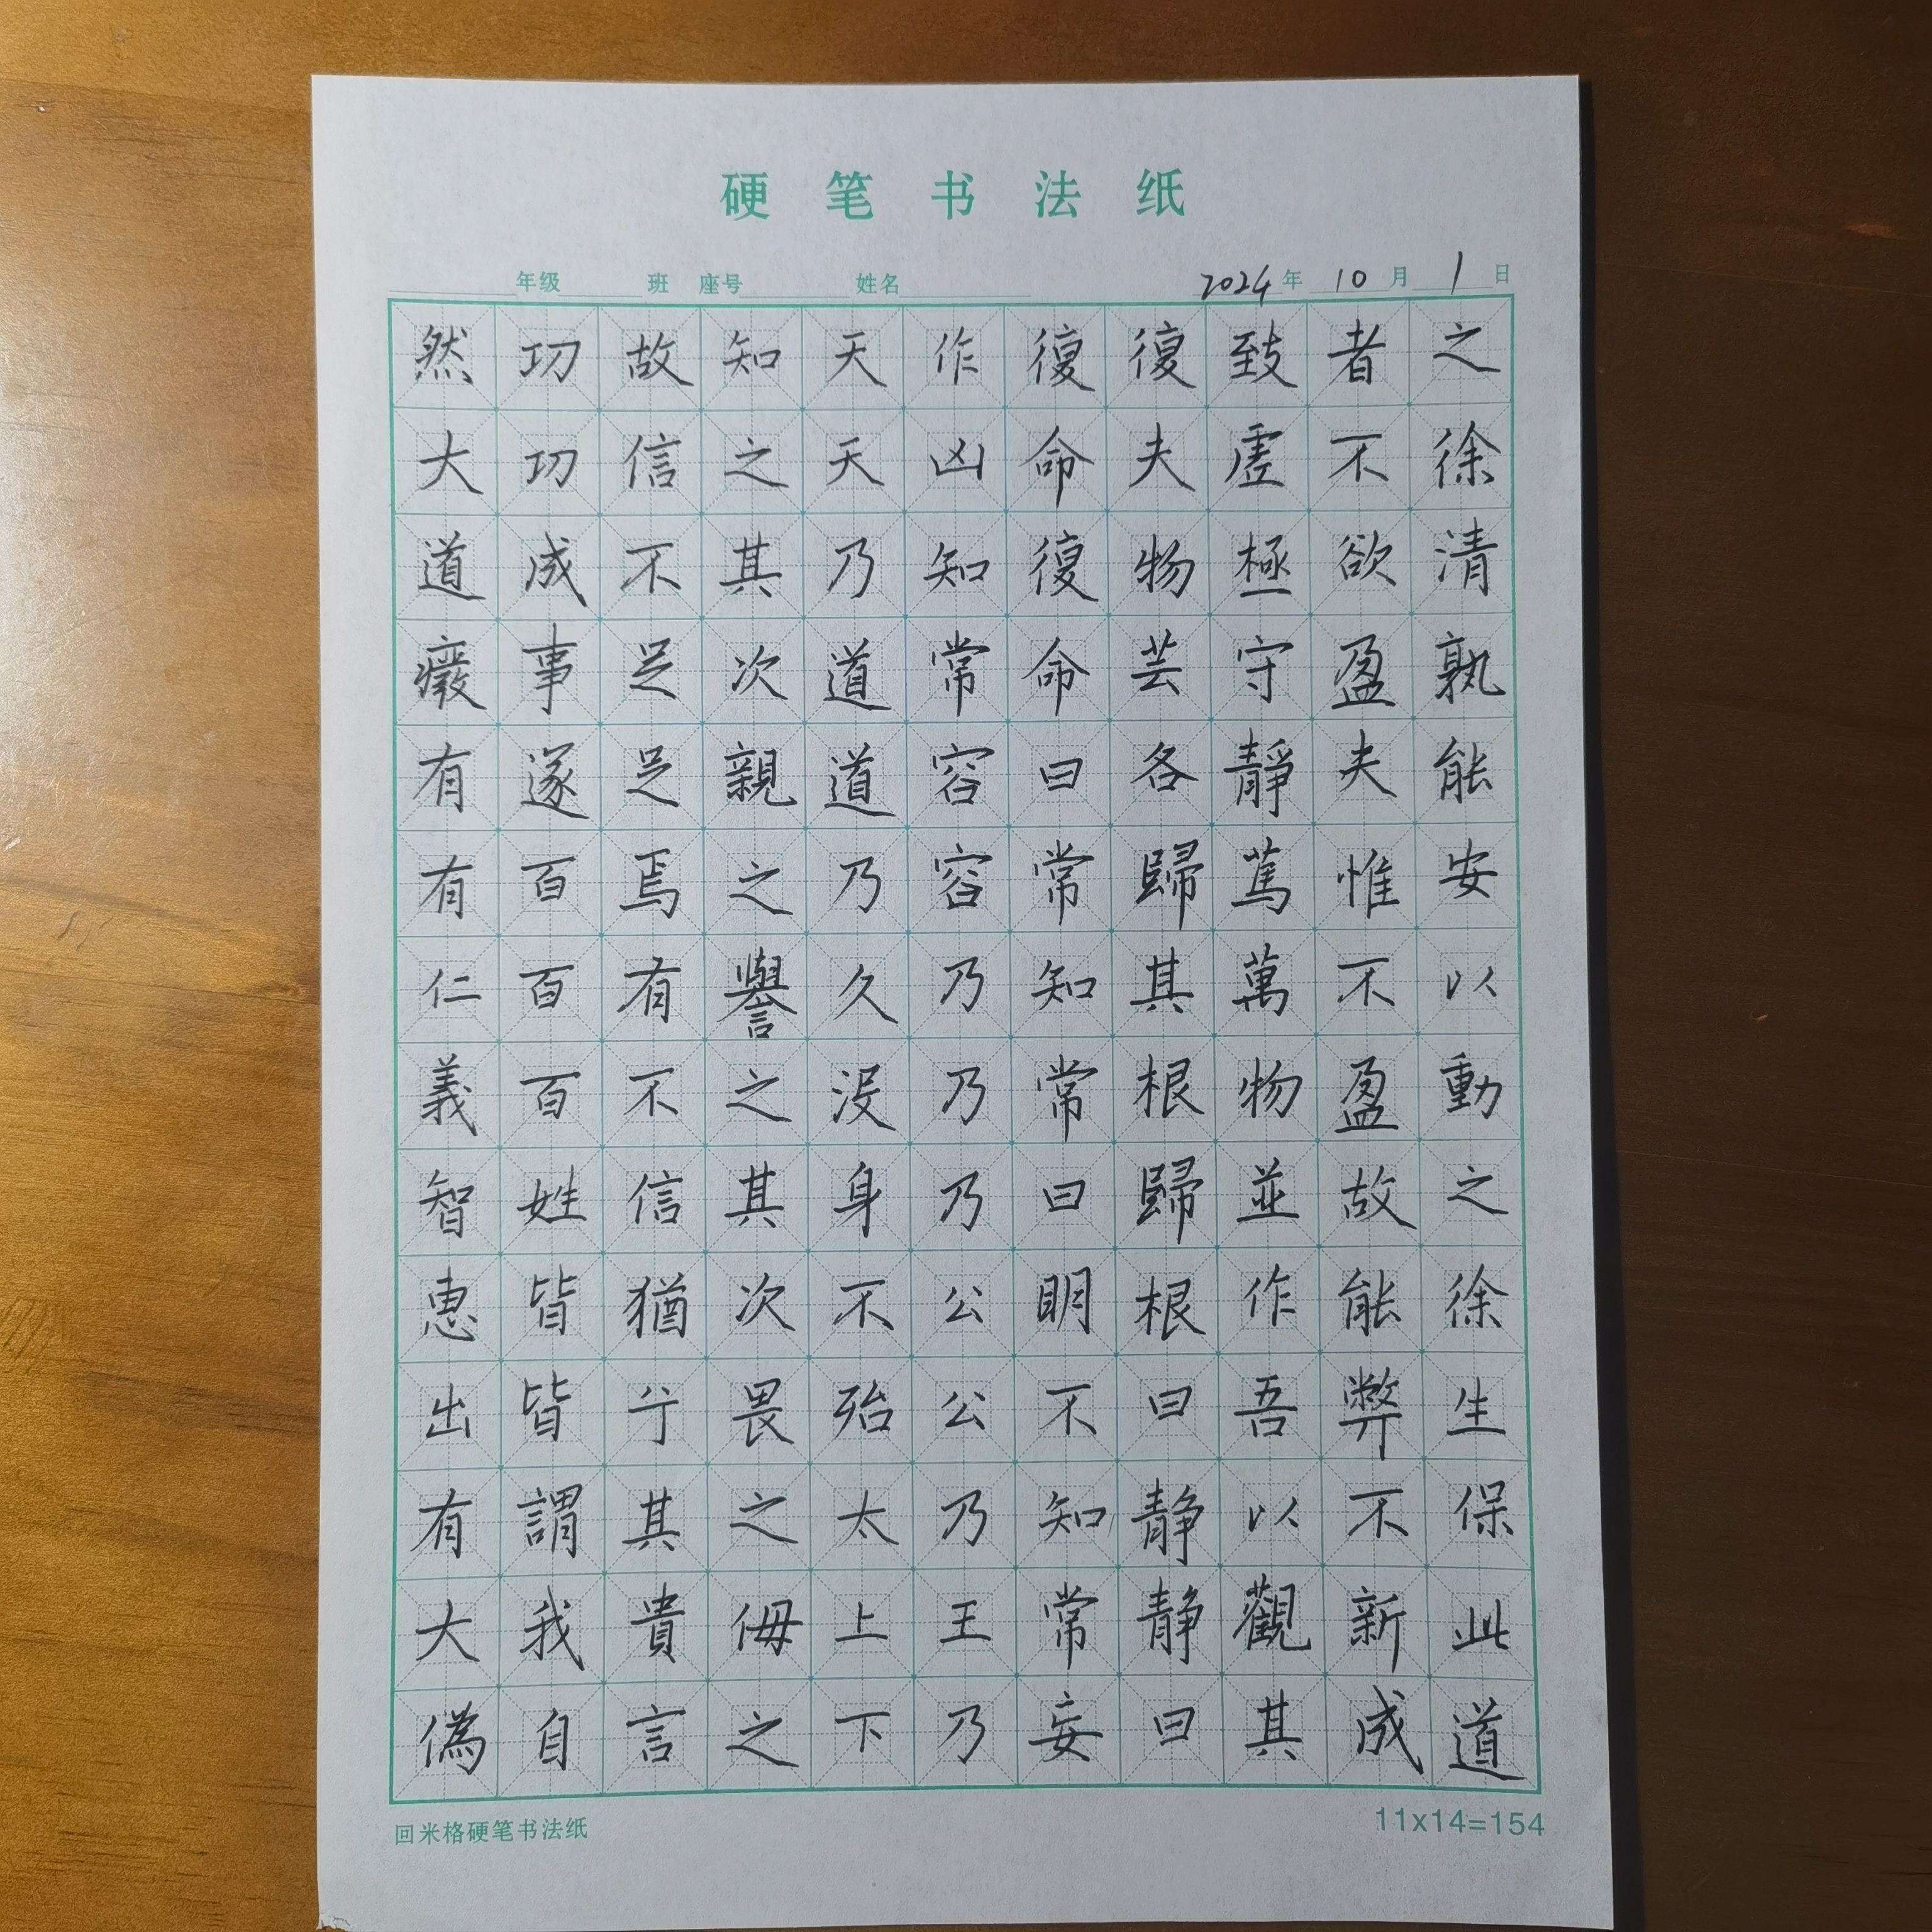 硬笔书法纸
年级 班 座号 姓名 2024年10月1日
之徐清孰能安以動之徐生保此道
者不欲盈夫惟不盈故能弊不新成
致虛極守靜篤萬物並作吾以觀其
復夫物芸各歸其根歸根曰静静曰
復命復命曰常知常曰眀不知常妄
作凶知常容容乃乃公公乃王乃
天天乃道道乃久没身不殆太上下
知之其次親之譽之其次畏之侮之
故信不足足焉有不信猶兮其貴言
功功成事遂百百百姓皆皆謂我自
然大道癈有有仁義智惠出有大偽
回米格硬笔书法纸 11x14=154